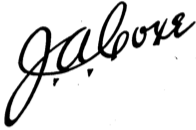 J.A. Coxe